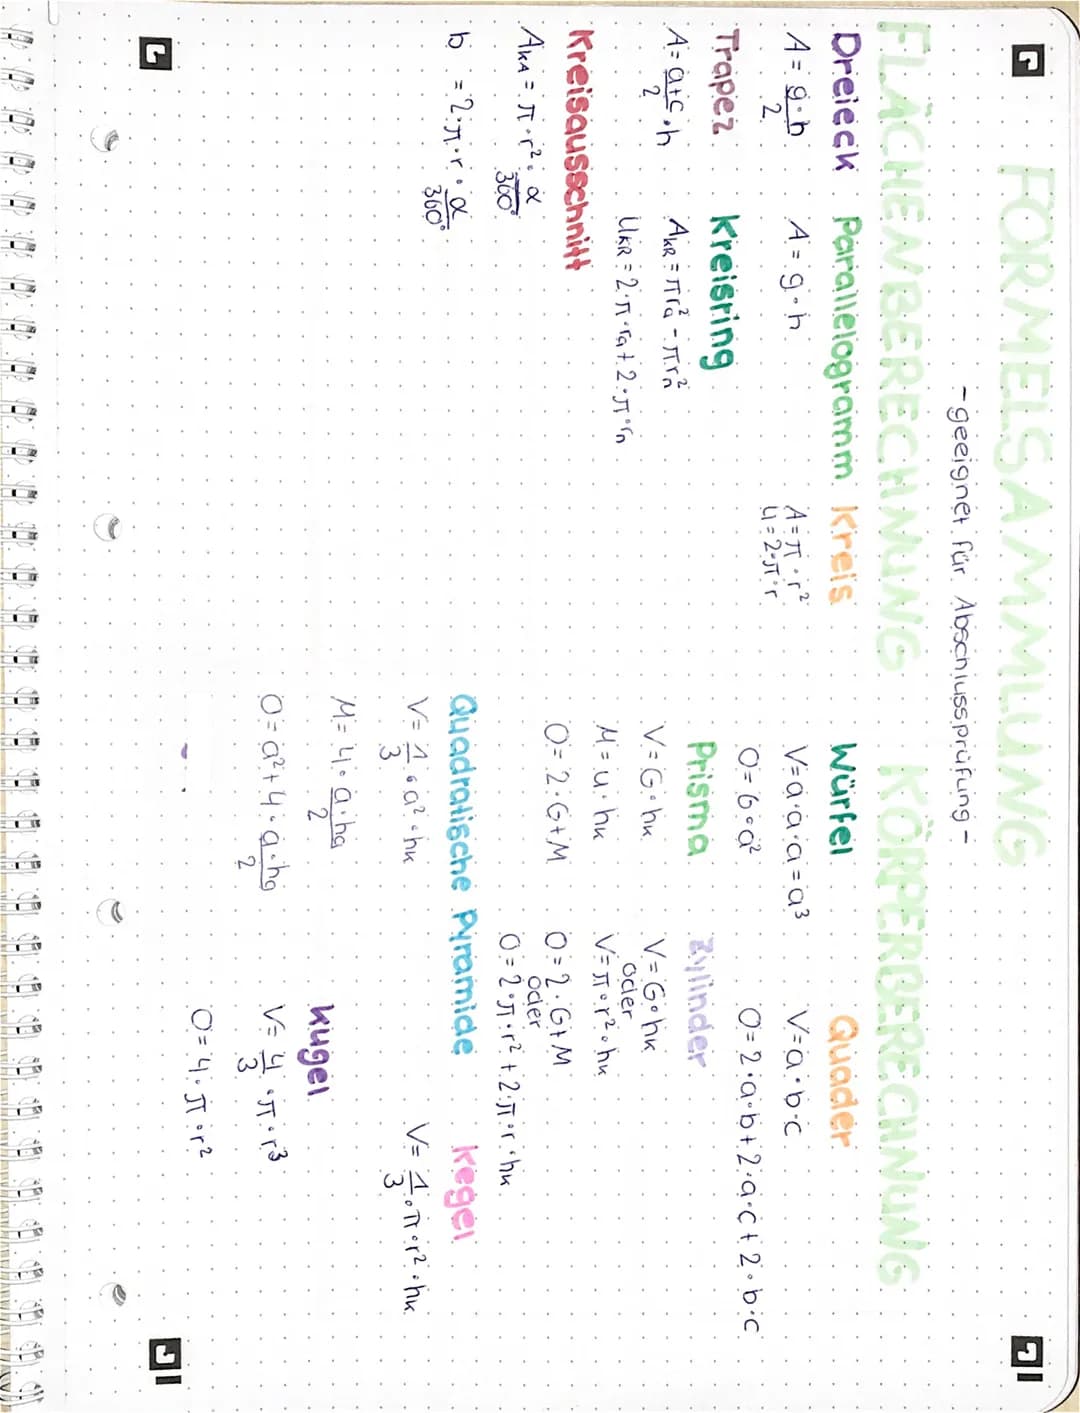 FORMELSAMMLUNG
-geeignet für Abschlussprüfung-
FLÄCHENBERECHNUNG
Dreieck
A = g·h/2
Parallelogramm
A = g·h
Kreis
A = π·r²
U = 2·π·r
Trapez
A = a+c/2 · h
Kreisring
A_KR = π r_a² - π·r_n²
U_KR = 2·π·r_a + 2·π·r_n
Kreisausschnitt
A_KA = π·r²· α/360°
b = 2·π·r· α/360°
KÖRPERBERECHNUNG
Würfel
V = a·a·a = a³
O = 6·a²
Quader
V = a·b·c
O = 2·a·b + 2·a·c + 2·b·c
Prisma
V = G·hk
M = u·hk
O = 2·G+M
Zylinder
V = G·hk
oder
V = π·r²·hk
O = 2·G+M
oder
O = 2·π·r² + 2·π·r·hk
Quadratische Pyramide
V = 1/3 ·a²·hk
M = 4· a·ha/2
O = a² + 4· a·ha/2
Kegel
V = 1/3 ·π·r²·hk
Kugel
V = 4/3 ·π·r³
O = 4·π·r²